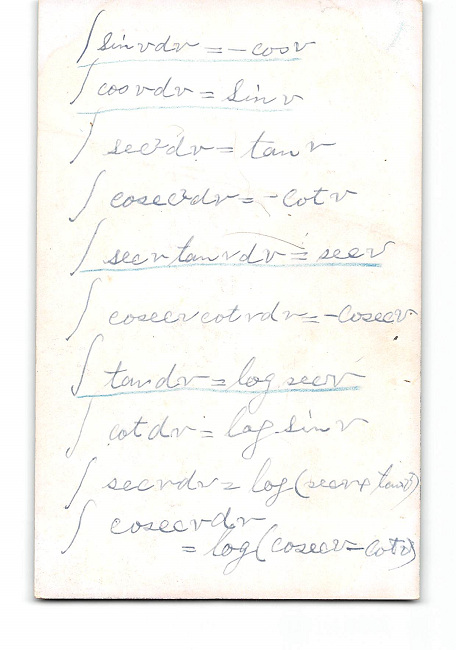 ∫ sin v dv = - cos v
∫ cos v dv = sin v
∫ sec² dv = tan v
∫ cosec² dv = - cot v
∫ sec v tan v dv = sec v
∫ cosec v cot v dv = - cosec v
∫ tan dv = log sec v
∫ cot dv = log sin v
∫ sec v dv = log (sec v + tan v)
∫ cosec v dv
= log (cosec v - cot v)